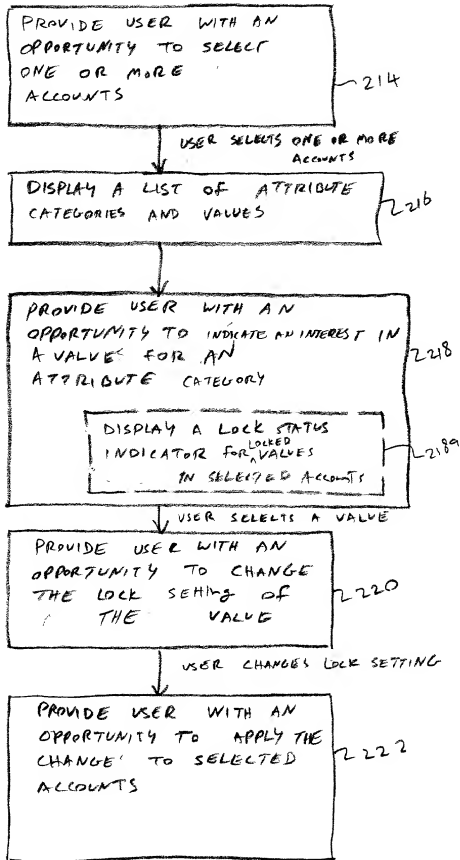 PROVIDE USER WITH AN
OPPORTUNITY TO SELECT
ONE OR MORE
ACCOUNTS
214
USER SELECTS ONE OR MORE
ACCOUNTS
DISPLAY A LIST OF ATTRIBUTE
CATEGORIES AND VALUES
216
PROVIDE USER WITH AN
OPPORTUNITY TO INDICATE AN INTEREST IN
A VALUE FOR AN
ATTRIBUTE CATEGORY
218
DISPLAY A LOCK STATUS
INDICATOR FOR LOCKED VALUES
IN SELECTED ACCOUNTS
218a
USER SELECTS A VALUE
PROVIDE USER WITH AN
OPPORTUNITY TO CHANGE
THE LOCK SETTING OF
THE VALUE
220
USER CHANGES LOCK SETTING
PROVIDE USER WITH AN
OPPORTUNITY TO APPLY THE
CHANGE TO SELECTED
ACCOUNTS
222